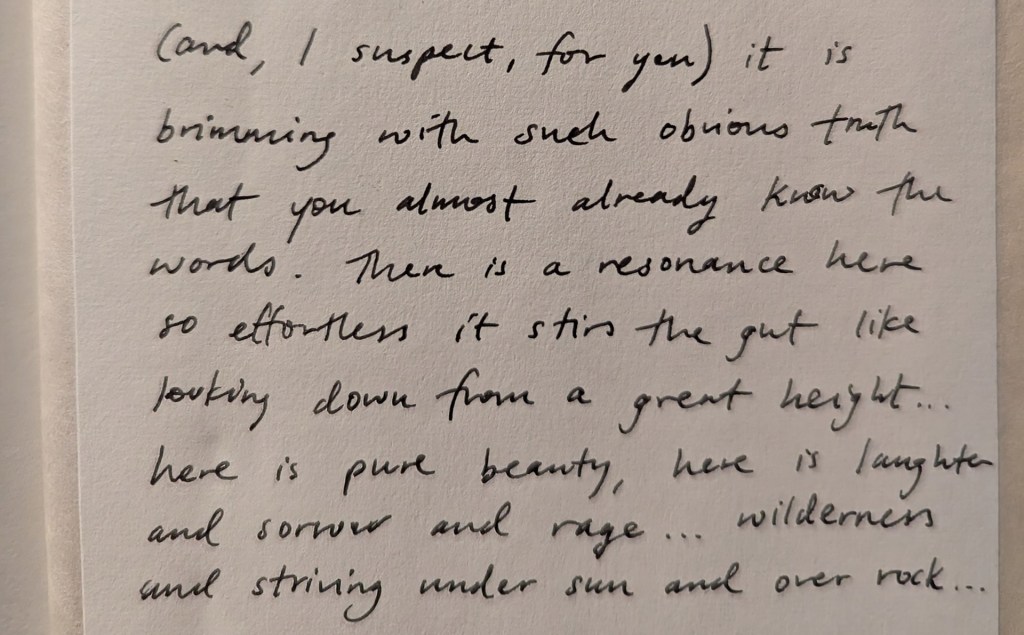 (and, I suspect, for you) it is
brimming with such obvious truth
that you almost already know the
words. There is a resonance here
so effortless it stirs the gut like
looking down from a great height...
here is pure beauty, here is laughter
and sorrow and rage... wilderness
and striving under sun and over rock...